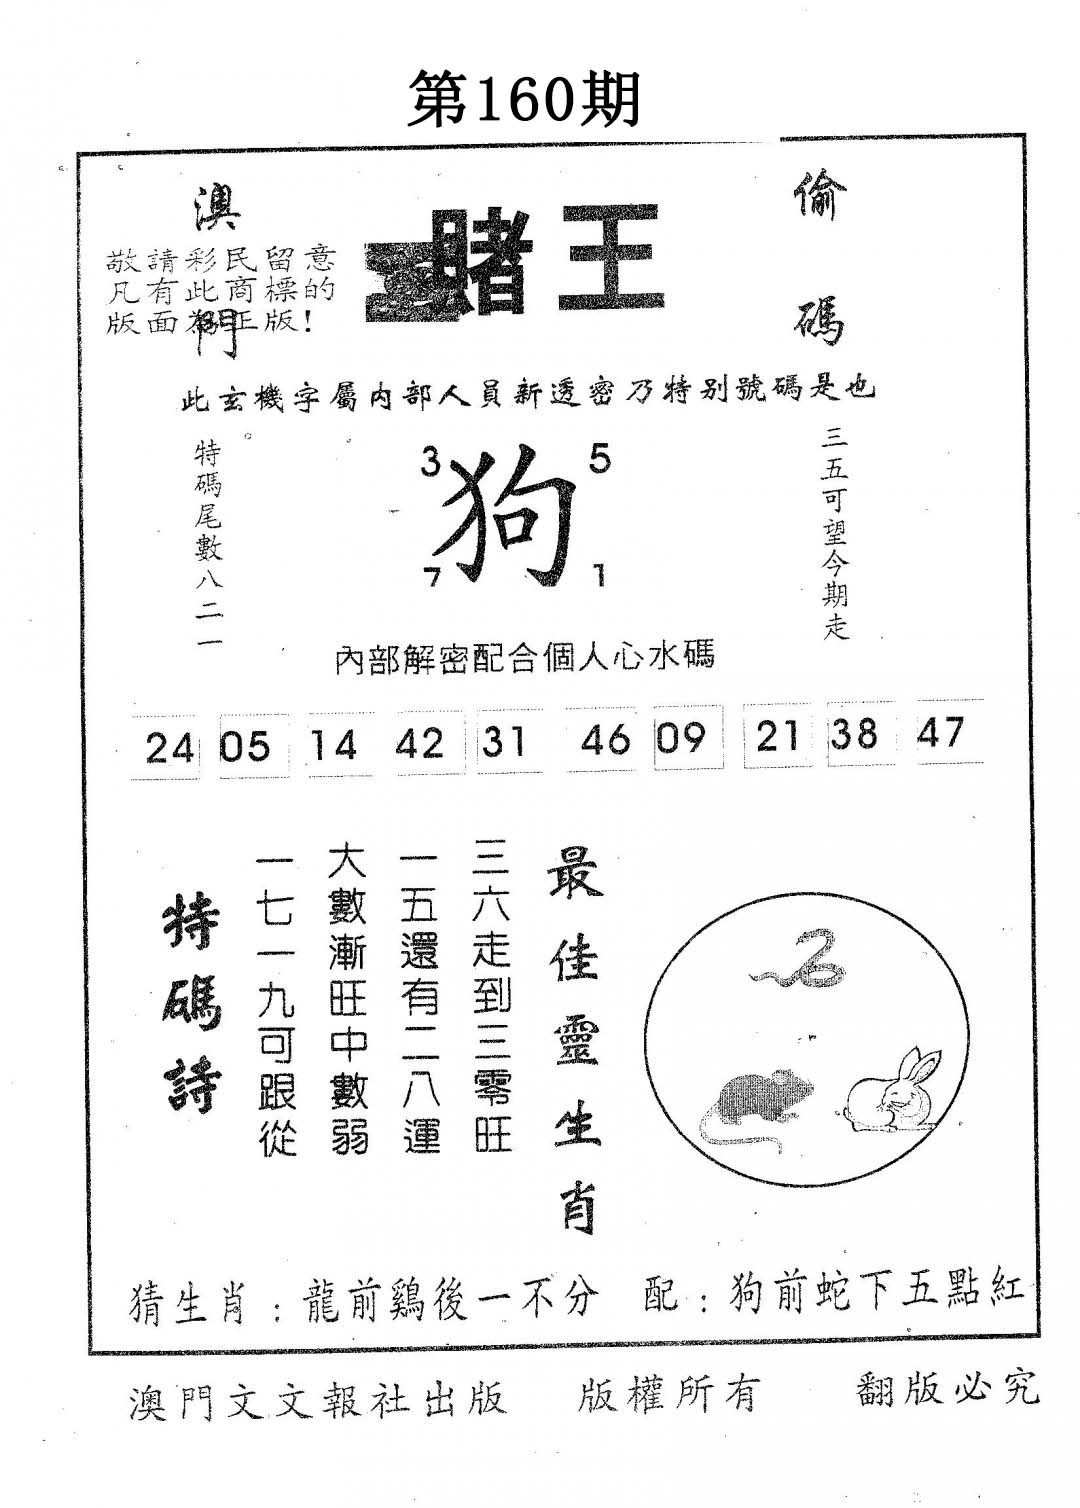 第160期
澳門
賭王
偷碼
敬請彩民留意
凡有此商標的
版面為正版!
此玄機字屬內部人員新透密乃特别號碼是也
特碼尾數八二一
3
5
狗
7
1
三五可望今期走
內部解密配合個人心水碼
24 05 14 42 31 46 09 21 38 47
最佳靈生肖
三六走到三零旺
一五還有二八運
大數漸旺中數弱
一七一九可跟從
特碼詩
猜生肖:龍前鷄後一不分 配:狗前蛇下五點紅
澳門文文報社出版 版權所有 翻版必究